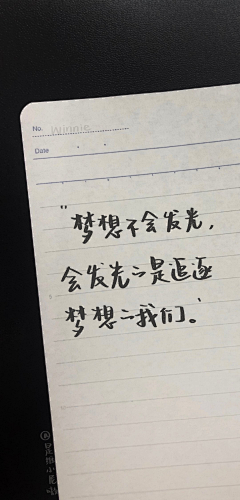 No. winnie
Date
"梦想不会发光，
会发光的是追逐
梦想的我们。"